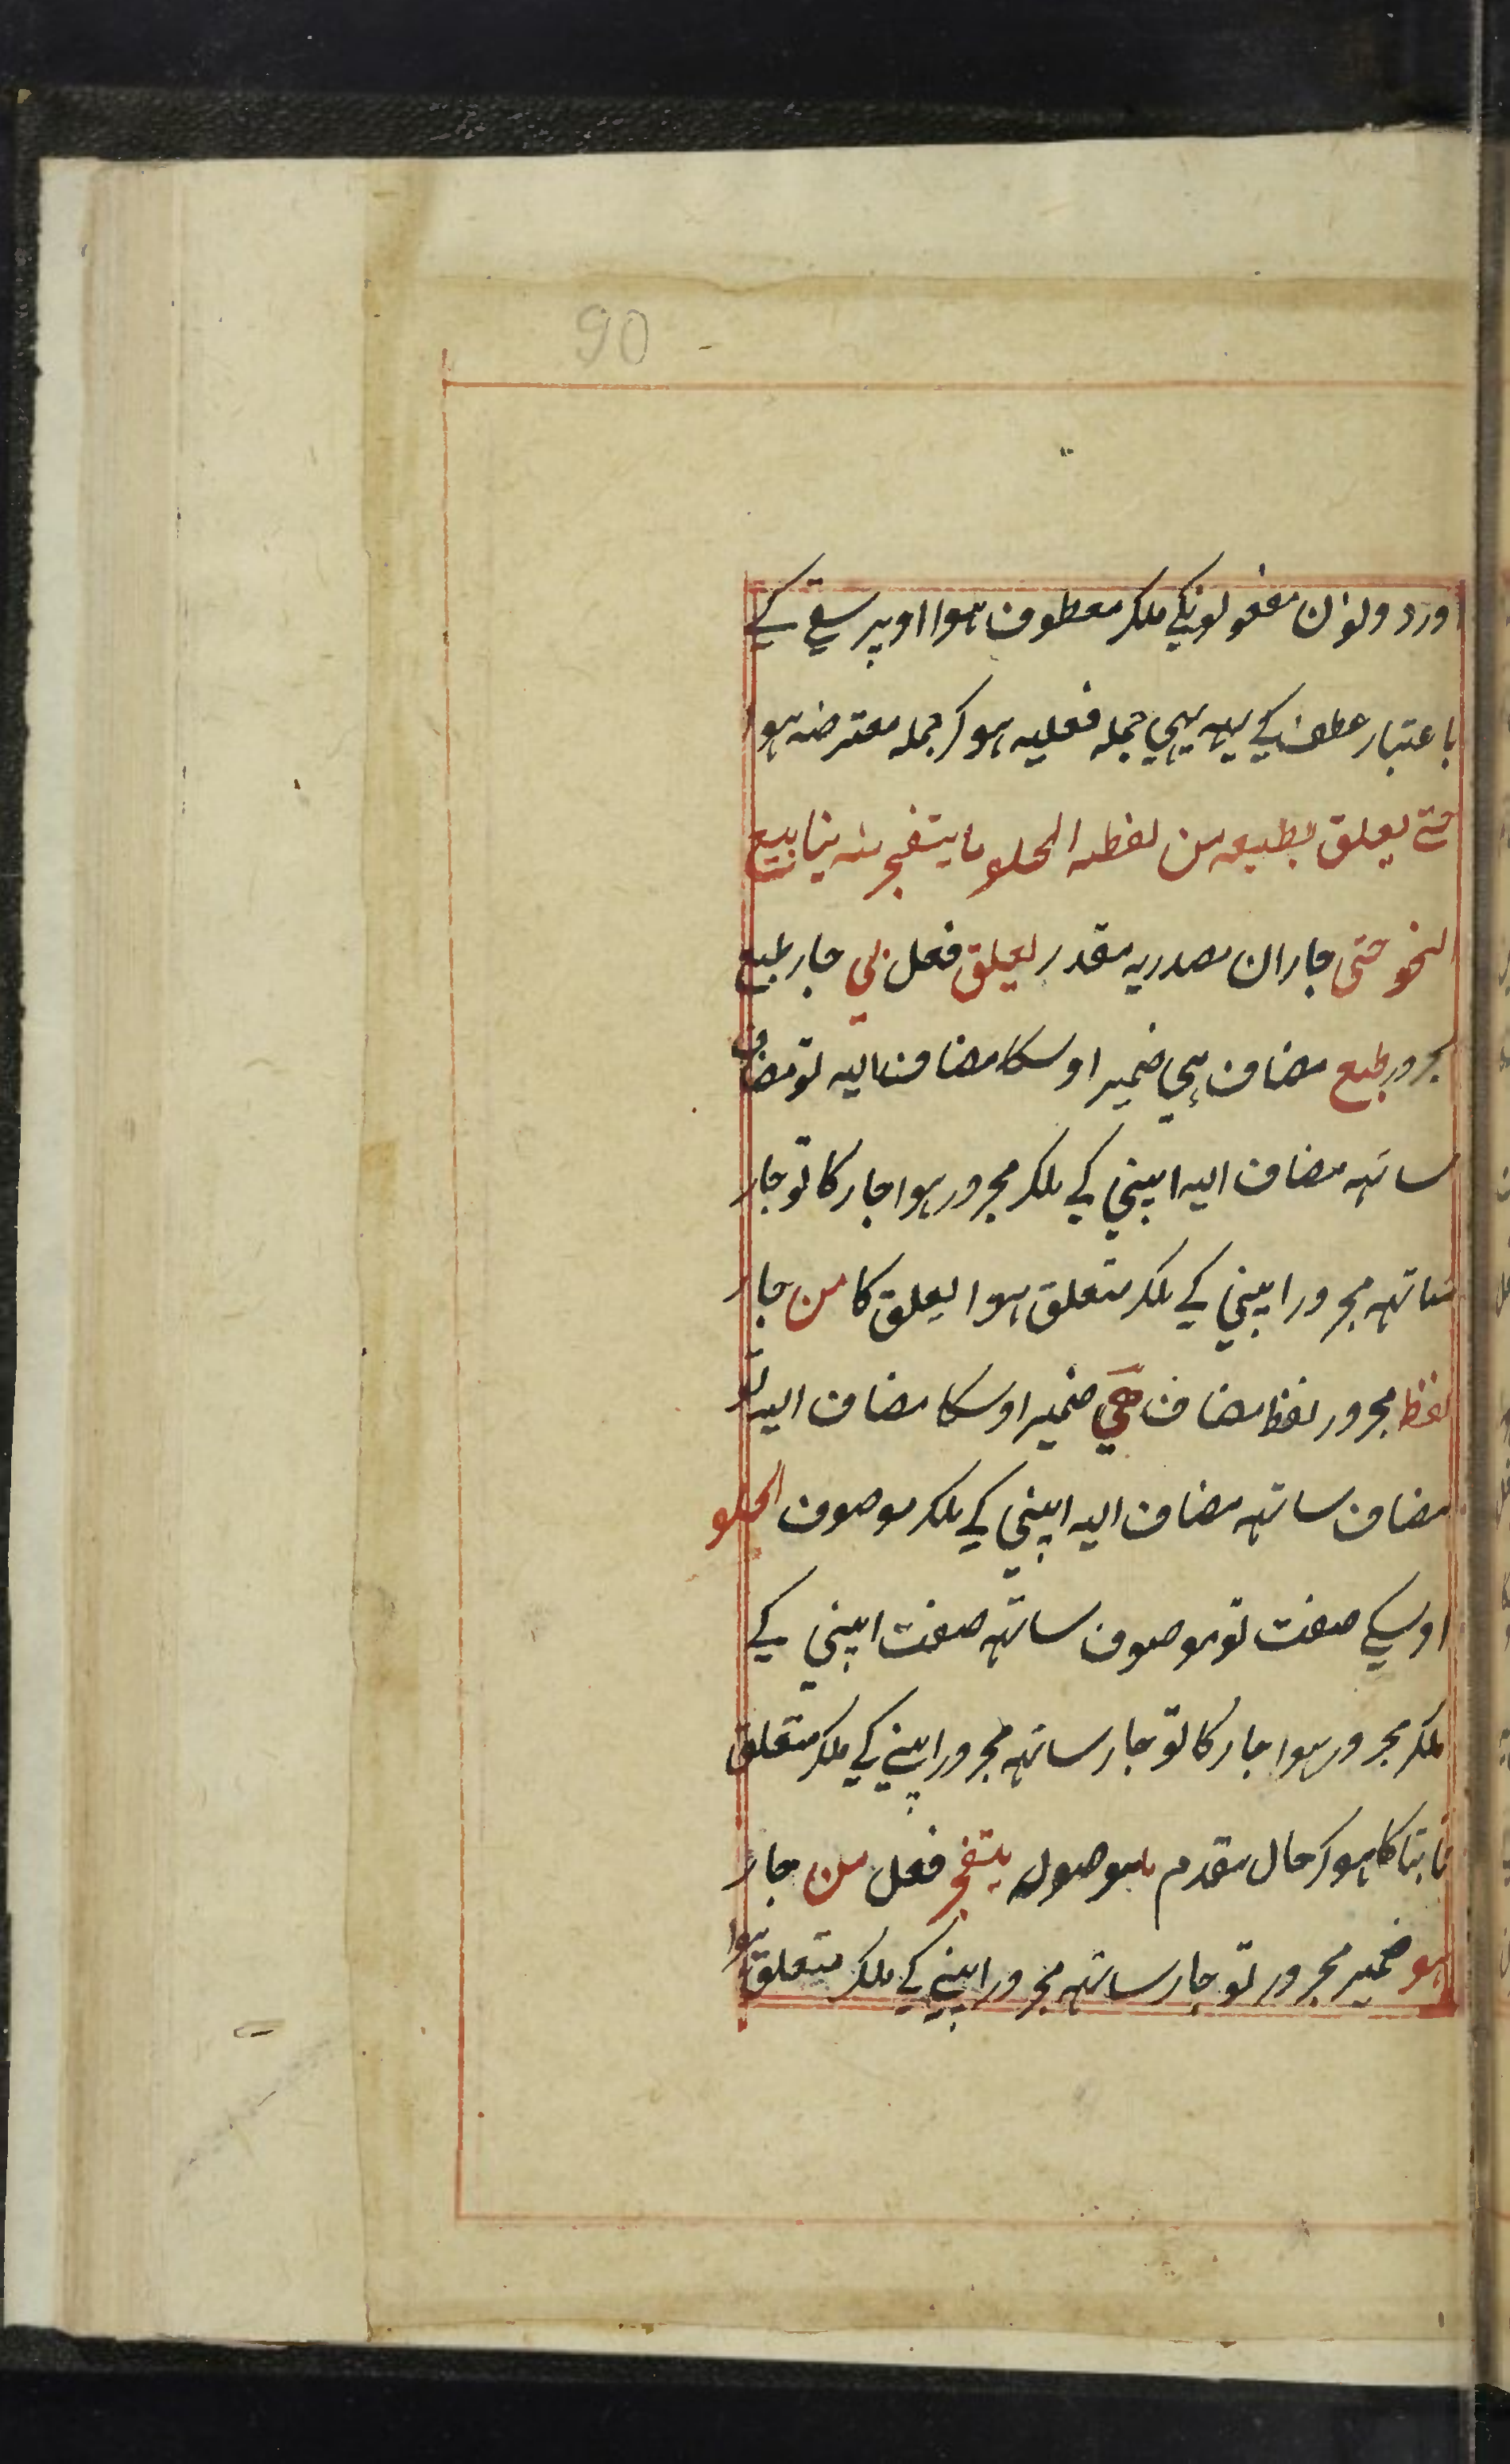 90
اور دولون مفعولونکی ملکر معطوف ہوا اوپر سقی کے
باعتبار عطف کے یہہ بھی جملہ فعلیہ ہو کر جملہ معترضہ ہوا
حتے یعلق بطبعہ من لفظہ الحلو ما یتفجر منہ ینابیع
النحو حتی جار ان مصدریہ مقدر یعلق فعل بی جار طبع
مجرور طبع مضاف ہی ضمیر اوسکا مضاف الیہ تو مضاف
ساتہہ مضاف الیہ اپنی کے ملکر مجرور ہوا جار کا تو جار
ساتہہ مجرور اپنی کے ملکر متعلق ہوا یعلق کا من جار
لفظ مجرور لفظ مضاف ہی ضمیر اوسکا مضاف الیہ تو
مضاف ساتہہ مضاف الیہ اپنی کے ملکر موصوف الحلو
اوسکے صفت تو موصوف ساتہہ صفت اپنی کے
ملکر مجرور ہوا جار کا تو جار ساتہہ مجرور اپنے کے ملکر متعلق
ثابتا کا ہو کر حال مقدم ما موصولہ یتفجر فعل من جار
ہو ضمیر مجرور تو جار ساتہہ مجرور اپنے کے ملکر متعلق ہوا